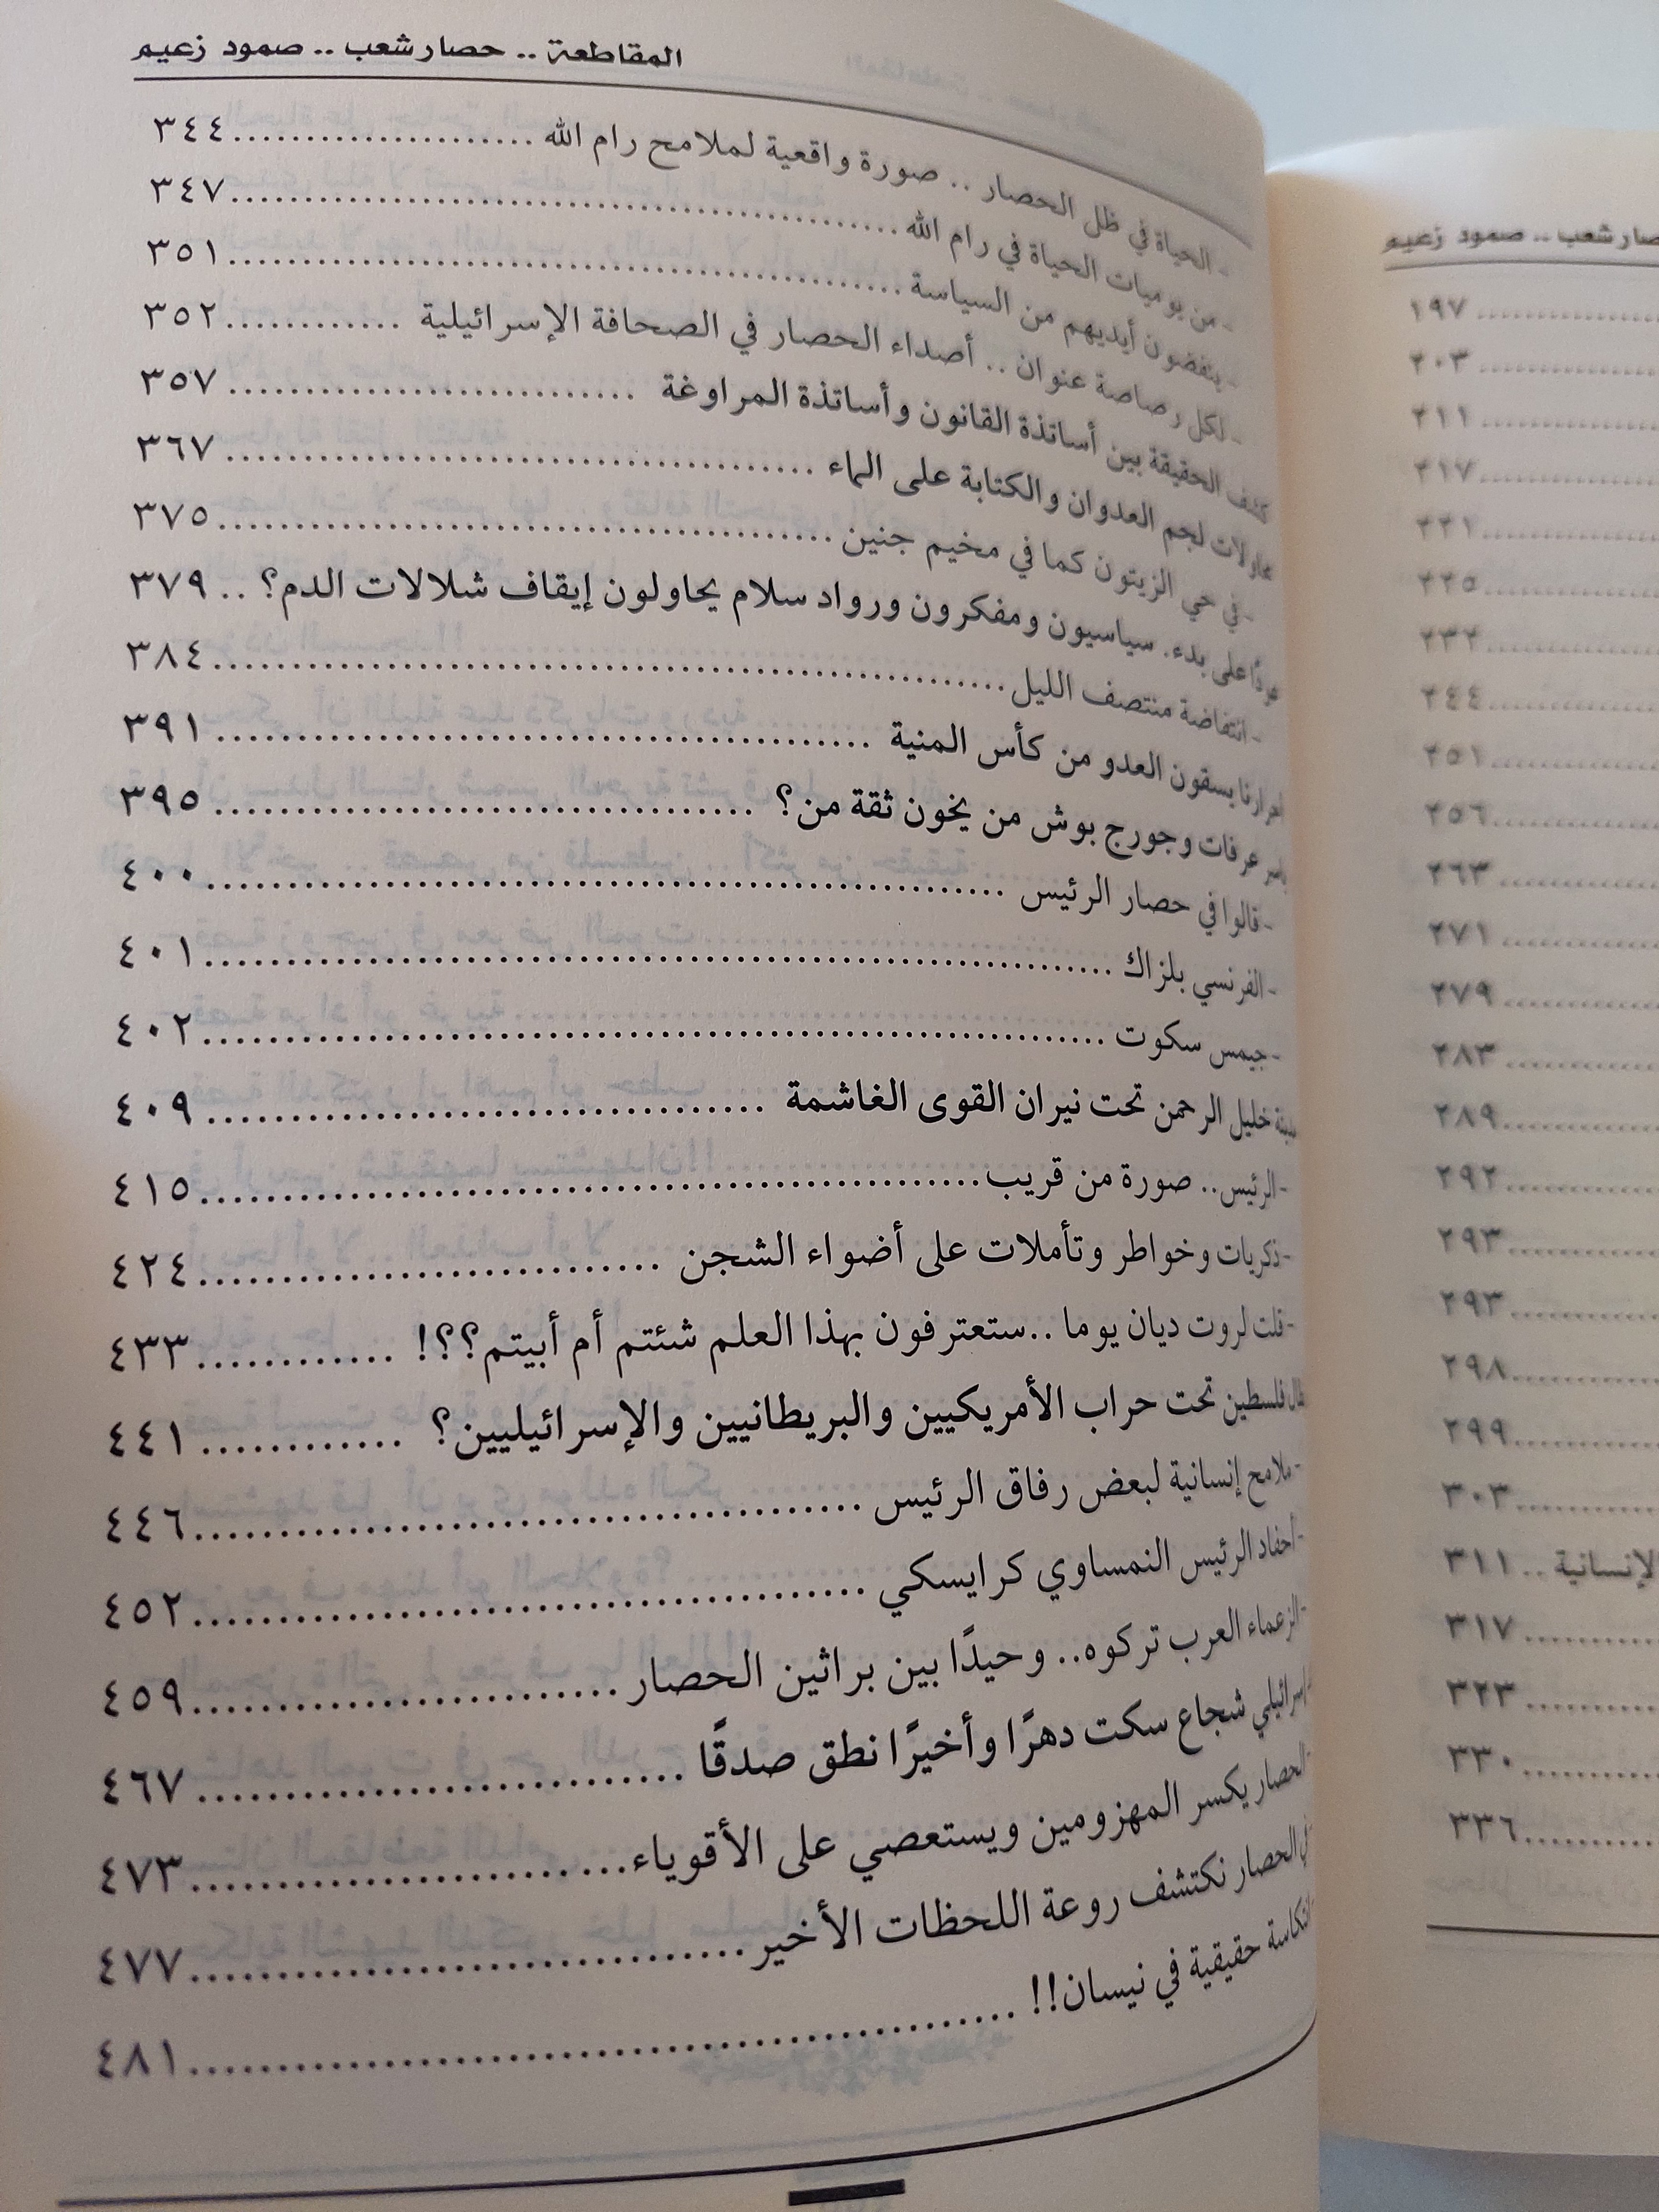 المقاطعة .. حصار شعب .. صمود زعيم
- الحياة في ظل الحصار .. صورة واقعية لملامح رام الله ..................... ٣٤٤
- من يوميات الحياة في رام الله ..................... ٣٤٧
- ينفضون أيديهم من السياسة ..................... ٣٥١
- لكل رصاصة عنوان .. أصداء الحصار في الصحافة الإسرائيلية ............ ٣٥٢
كشف الحقيقة بين أساتذة القانون وأساتذة المراوغة ..................... ٣٥٧
محاولات لجم العدوان والكتابة على الماء ..................... ٣٦٧
- في حي الزيتون كما في مخيم جنين ..................... ٣٧٥
عودًا على بدء. سياسيون ومفكرون ورواد سلام يحاولون إيقاف شلالات الدم؟ .. ٣٧٩
- انتفاضة منتصف الليل ..................... ٣٨٤
يسقون العدو من كأس المنية ..................... ٣٩١
ياسر عرفات وجورج بوش من يخون ثقة من؟ ..................... ٣٩٥
- قالوا في حصار الرئيس ..................... ٤٠٠
- الفرنسي بلزاك ..................... ٤٠١
- جيمس سكوت ..................... ٤٠٢
مدينة خليل الرحمن تحت نيران القوى الغاشمة ..................... ٤٠٩
- الرئيس.. صورة من قريب ..................... ٤١٥
- ذكريات وخواطر وتأملات على أضواء الشجن ..................... ٤٢٤
- قلت لروت ديان يوما ..ستعترفون بهذا العلم شئتم أم أبيتم؟؟! ............ ٤٣٣
فلسطين تحت حراب الأمريكيين والبريطانيين والإسرائيليين؟ ............ ٤٤١
- ملامح إنسانية لبعض رفاق الرئيس ..................... ٤٤٦
- أحفاد الرئيس النمساوي كرايسكي ..................... ٤٥٢
- الزعماء العرب تركوه.. وحيدًا بين براثين الحصار ..................... ٤٥٩
إسرائيلي شجاع سكت دهرًا وأخيرًا نطق صدقًا ..................... ٤٦٧
الحصار يكسر المهزومين ويستعصي على الأقوياء ..................... ٤٧٣
في الحصار نكتشف روعة اللحظات الأخير ..................... ٤٧٧
انتكاسة حقيقية في نيسان!! ..................... ٤٨١
صار شعب .. صمود زعيم
١٩٧
٢٠٣
٢١١
٢١٧
٢٢١
٢٢٥
٢٣٢
٢٤٤
٢٥١
٢٥٦
٢٦٣
٢٧١
٢٧٩
٢٨٣
٢٨٩
٢٩٢
٢٩٣
٢٩٣
٢٩٨
٢٩٩
٣٠٣
الإنسانية .. ٣١١
٣١٧
٣٢٣
٣٣٠
٣٣٦